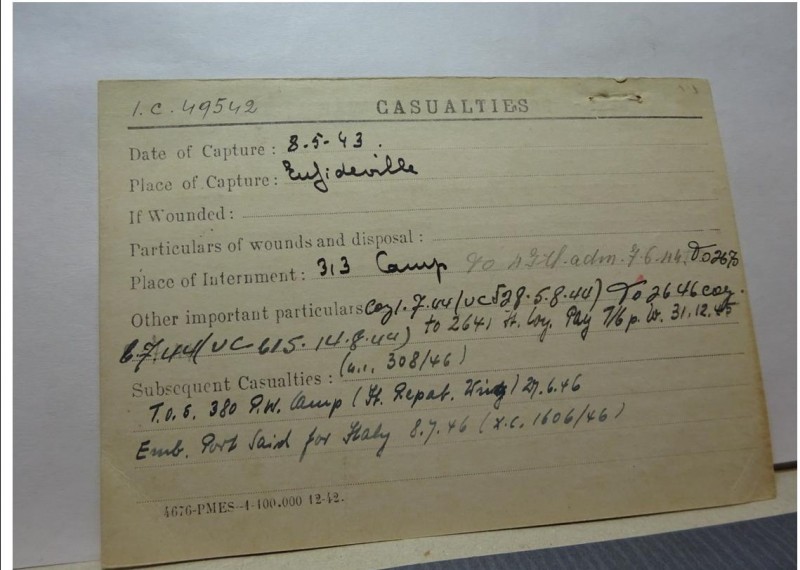 I.C. 49542 CASUALTIES
Date of Capture : 8-5-43.
Place of Capture : Enfideville
If Wounded :
Particulars of wounds and disposal :
Place of Internment : 313 Camp to adm. 7.6.44. To 2670
Other important particulars Coy 1.7.44 (UC 528.5.8.44) To 2646 coy.
6.7.44 (UC 615.14.8.44) to 2641 It. Coy. 31.12.45
Subsequent Casualties : 308/46)
T.O.S. 380 P.W. Camp (It. Repat. Wing) 27.6.46
Emb. Port Said for Italy 8.7.46 (X.C. 1606/46)
4676-PMES-4-100.000 12-42.